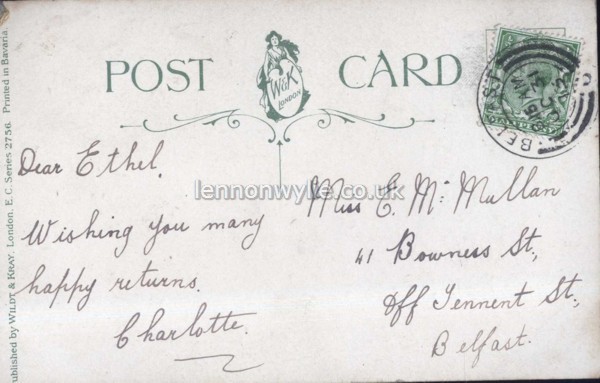 POST CARD
W&K
LONDON
BELFAST
Dear Ethel.
Wishing you many
happy returns.
Charlotte.
Miss E. Mc Mullan
41 Bowness St,
Off Tennent St,
Belfast.
lennonwylie.co.uk
Published by WILDT & KRAY, London, E.C. Series 2756. Printed in Bavaria.